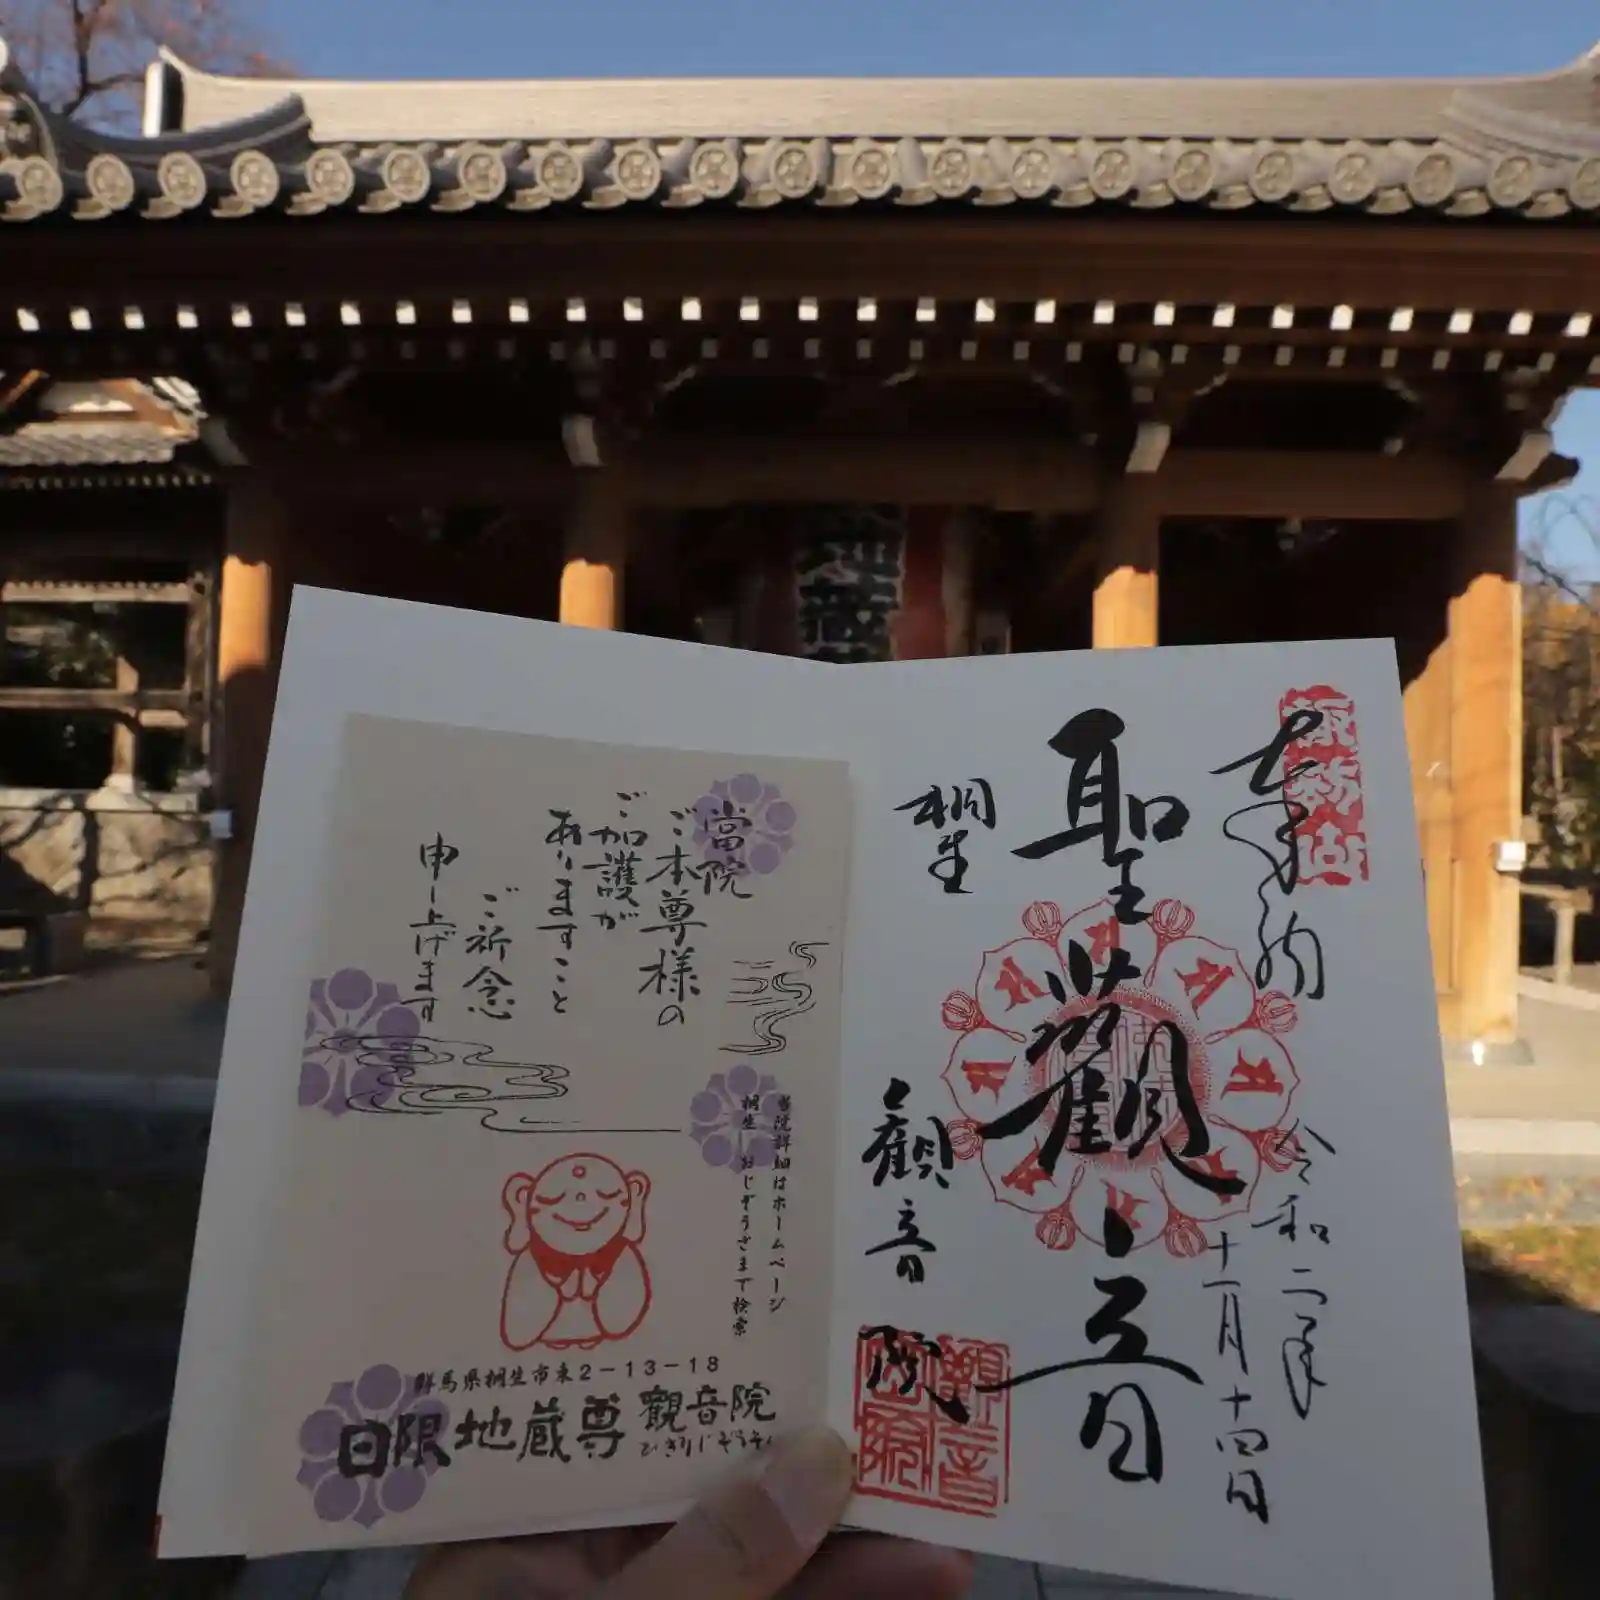 地蔵
奉納
令和二年
十一月十四日
聖観音
桐生
観音院
観音院
當院
ご本尊様の
ご加護が
ありますこと
ご祈念
申し上げます
当院詳細はホームページ
桐生 おじぞうさまで検索
群馬県桐生市東2-13-18
日限地蔵尊 観音院